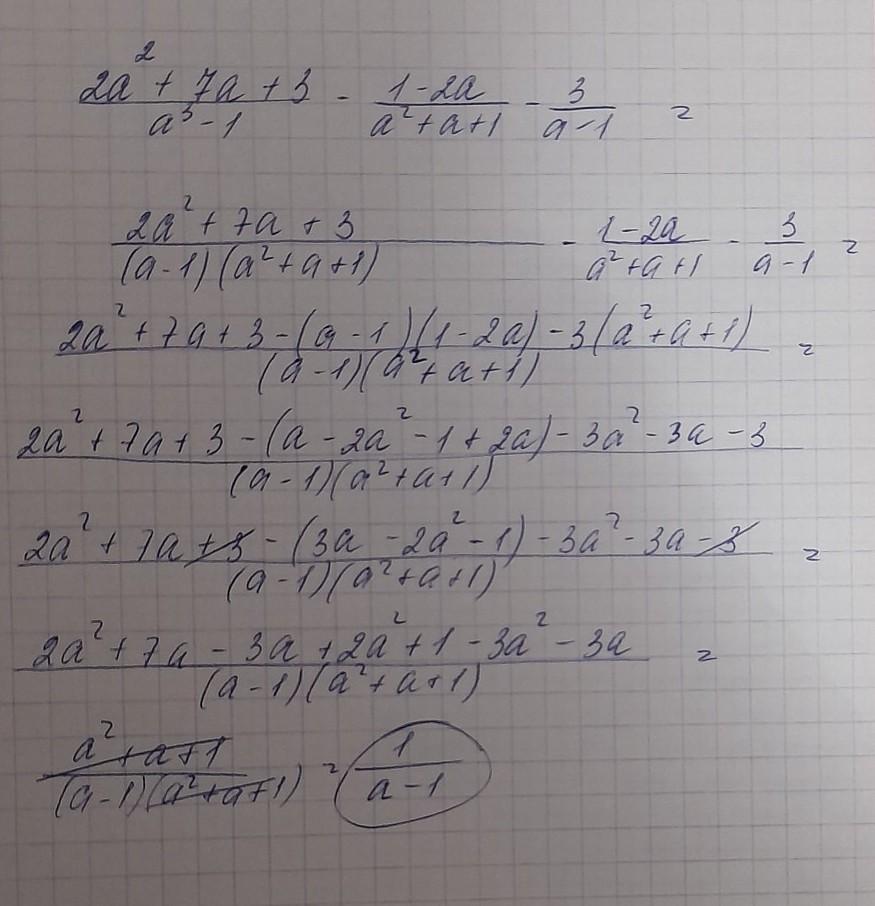 (2a² + 7a + 3)/(a³ - 1) - (1 - 2a)/(a² + a + 1) - 3/(a - 1) =
(2a² + 7a + 3)/((a - 1)(a² + a + 1)) - (1 - 2a)/(a² + a + 1) - 3/(a - 1) =
(2a² + 7a + 3 - (a - 1)(1 - 2a) - 3(a² + a + 1))/((a - 1)(a² + a + 1)) =
(2a² + 7a + 3 - (a - 2a² - 1 + 2a) - 3a² - 3a - 3)/((a - 1)(a² + a + 1))
(2a² + 7a + 3 - (3a - 2a² - 1) - 3a² - 3a - 3)/((a - 1)(a² + a + 1)) =
(2a² + 7a - 3a + 2a² + 1 - 3a² - 3a)/((a - 1)(a² + a + 1)) =
(a² + a + 1)/((a - 1)(a² + a + 1)) = 1/(a - 1)